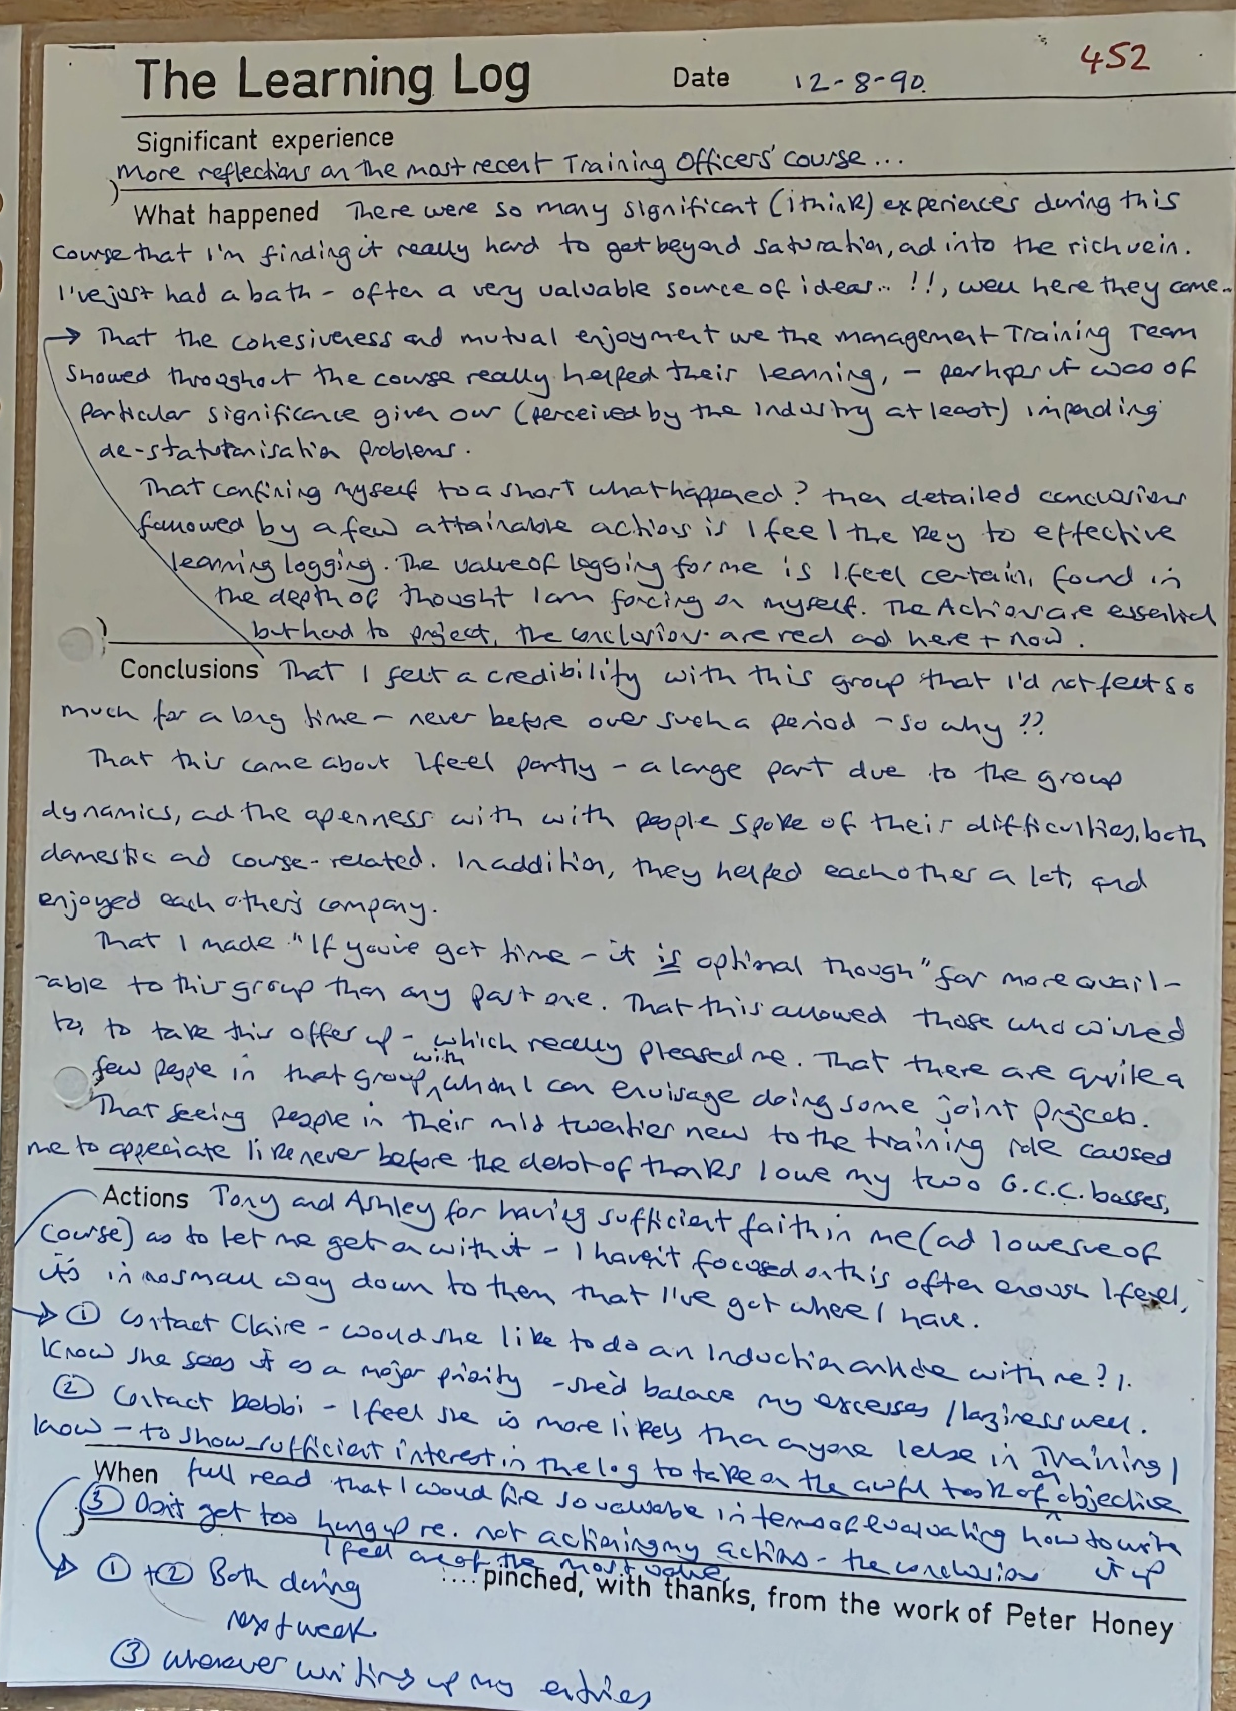 452
The Learning Log Date 12-8-90.
Significant experience
More reflections on the most recent Training Officers' course...
What happened There were so many significant (i think) experiences during this
course that I'm finding it really hard to get beyond saturation, ad into the rich vein.
I've just had a bath - often a very valuable source of ideas.. !!, well here they come..
→ That the cohesiveness and mutual enjoyment we the management Training Team
showed throughout the course really helped their learning, - perhaps it was of
particular significance given our (perceived by the industry at least) impending
de-statutorisation problems.
That confining myself to a short what happened? then detailed conclusions
followed by a few attainable actions is I feel the key to effective
learning logging. The value of logging for me is I feel certain, found in
the depth of thought I am forcing on myself. The Actions are essential
but had to project, the conclusions are real ad here + now.
Conclusions That I felt a credibility with this group that I'd not felt so
much for a long time - never before over such a period - so why ??
That this came about I feel partly - a large part due to the group
dynamics, ad the openness with with people spoke of their difficulties, both
domestic ad course-related. In addition, they helped each other a lot, and
enjoyed each others company.
That I made "If you've got time - it is optional though" far more avail-
-able to this group than any past one. That this allowed those who wished
to, to take this offer up - which really pleased me. That there are quite a
few people in that group, with whom I can envisage doing some joint projects.
That seeing people in their mid twenties new to the training role caused
me to appeciate like never before the debt of thanks I owe my two G.C.C. bosses,
Actions Tony and Ashley for having sufficient faith in me (ad lowesve of
course) as to let me get on with it - I haven't focused on this often enough I feel,
it's in no small way down to them that I've got where I have.
→ ① Contact Claire - would she like to do an Induction article with me? I
know she sees it as a major priority - she'd balace my excesses / laziness well.
② Contact Debbi - I feel she is more likely than anyone I else in Training I
know - to show sufficient interest in the log to take on the awful task of an objective
When full read that I would fine so valuable in terms of evaluating how to write
③ Don't get too hung up re. not actioning my actions - the conclusions it up
I feel are of the most value
→ ① + ② Both during
next week
.... pinched, with thanks, from the work of Peter Honey
③ whenever writing up my entries